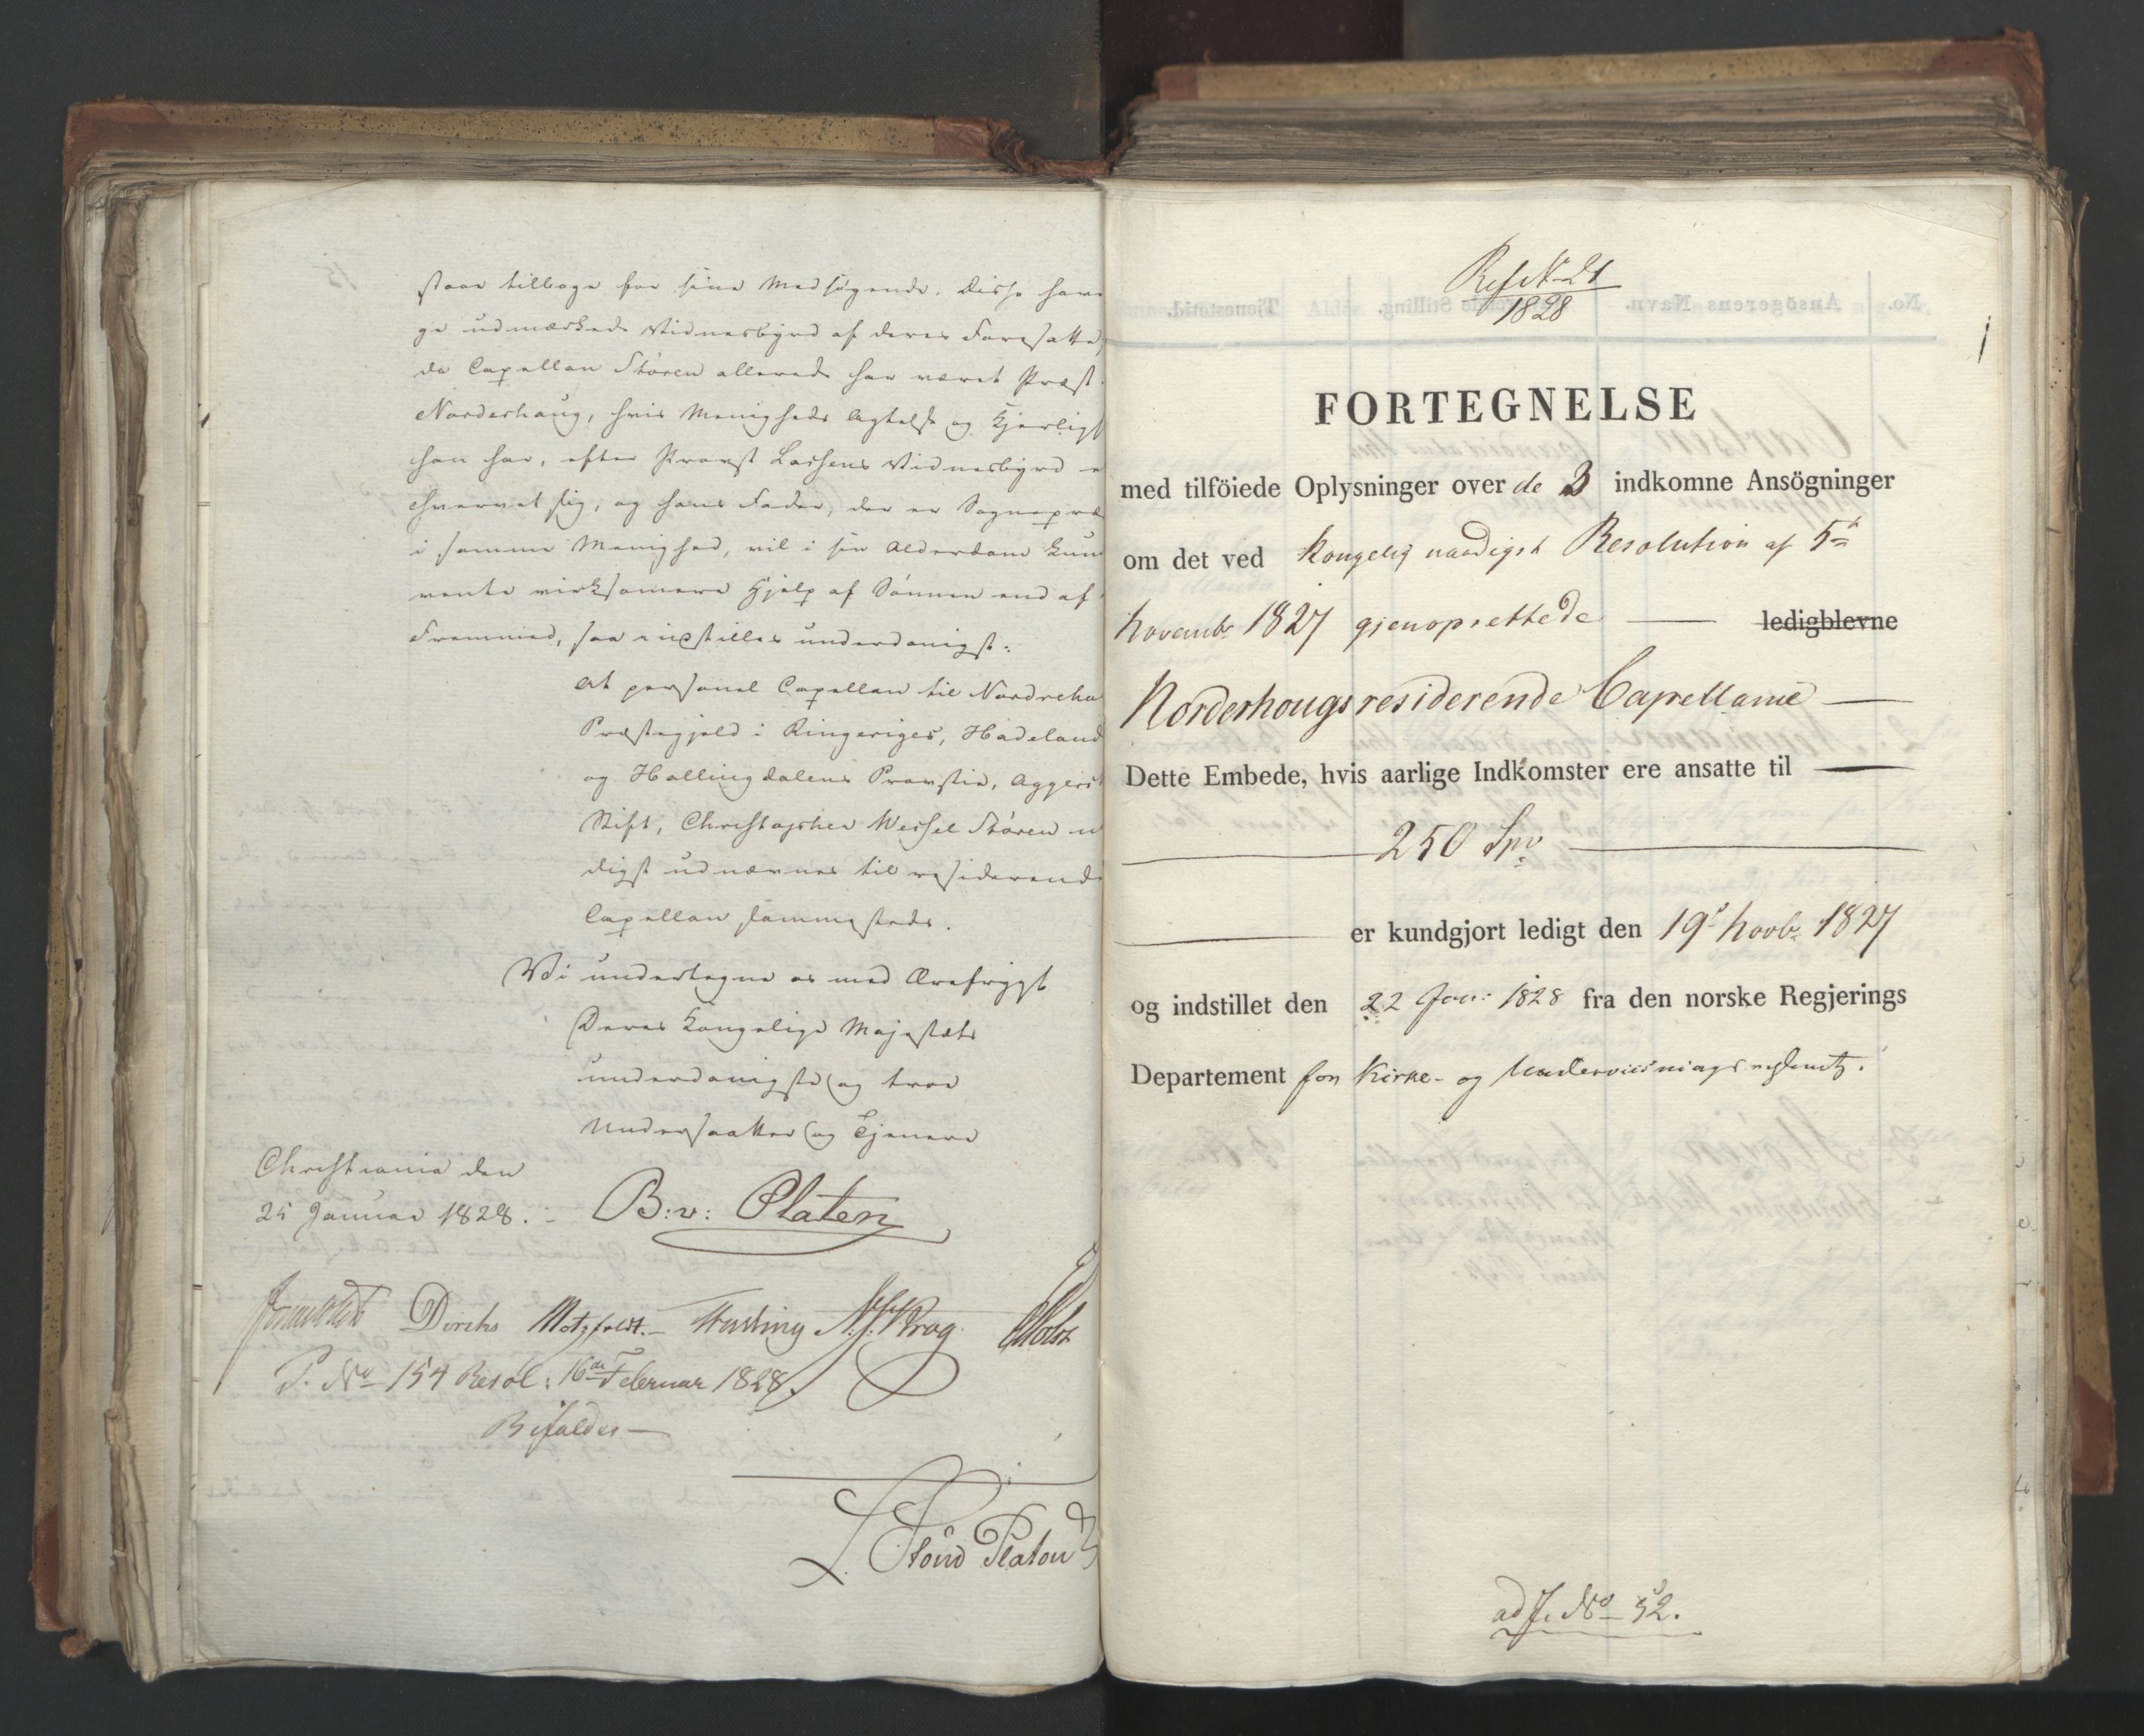 staae tilbage for sine Medsøgende. Disse have
ge udmærkede Vidnesbyrd af deres Foresatte,
da Capellan Støren allerede har været Præst
Norderhaug, hvis Menigheds Agtelse og Kjerligh
han har, efter Provst Lassens Vidnesbyrd
ehvervet sig, og hans Fader, der er Sognepræ
i samme Menighed, vil i sin Alderdom kun
vente virksomere Hjelp af Sønnen end af
Fremmed, saa indstilles underdanigst:
At personel Capellan til Norderho
Præstegjeld i Ringeriges, Hadeland
og Hallingdalens Provstie, Aggers
Stift, Christopher Wessel Støren n
digst udnævnes til residerende
Capellan sammesteds.
Vi undertegne os med Ærefrygt
Deres Kongelige Majestæts
underdanigste og troe
Undersaatter og Tjenere
Christiania den
25 Januar 1828.
B: v: Platen
Diriks Motzfeldt. Fasting Krog Holst
P. No 154 Resol: 16de Februar 1828.
Bifaldes
Platou
Ref. N. 21
1828
1
FORTEGNELSE
med tilföiede Oplysninger over de 3 indkomne Ansögninger
om det ved kongelig naadigst Resolution af 5te
Novembr 1827 gjenoprettede ledigblevne
Norderhougs residerende Capellanie
Dette Embede, hvis aarlige Indkomster ere ansatte til
250 Spd
er kundgjort ledigt den 19d Novbr 1827
og indstillet den 22 Jan: 1828 fra den norske Regjerings
Departement for Kirke- og Underviisningsvæsenet.
ad J. No 52.